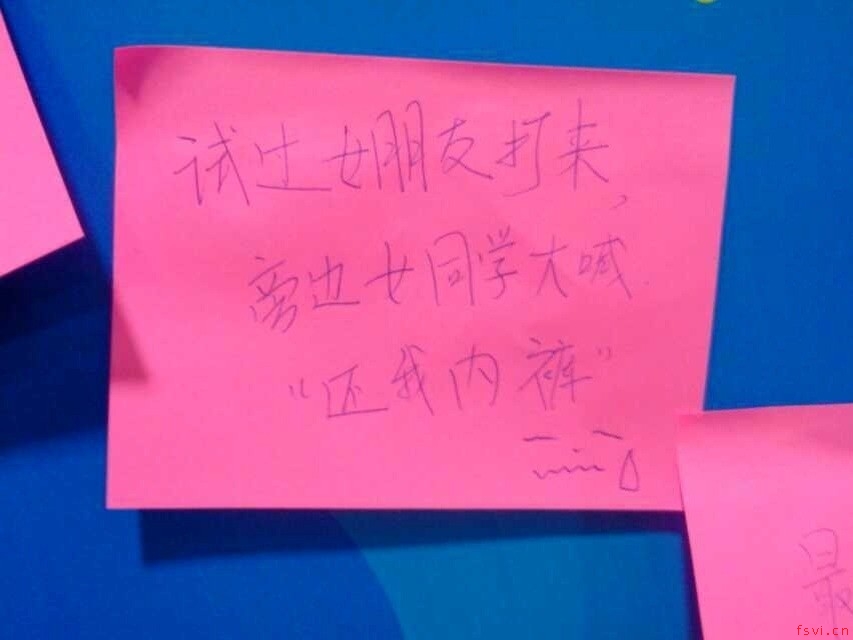 试过女朋友打来,
旁边女同学大喊
“还我内裤”
最
fsvi.cn